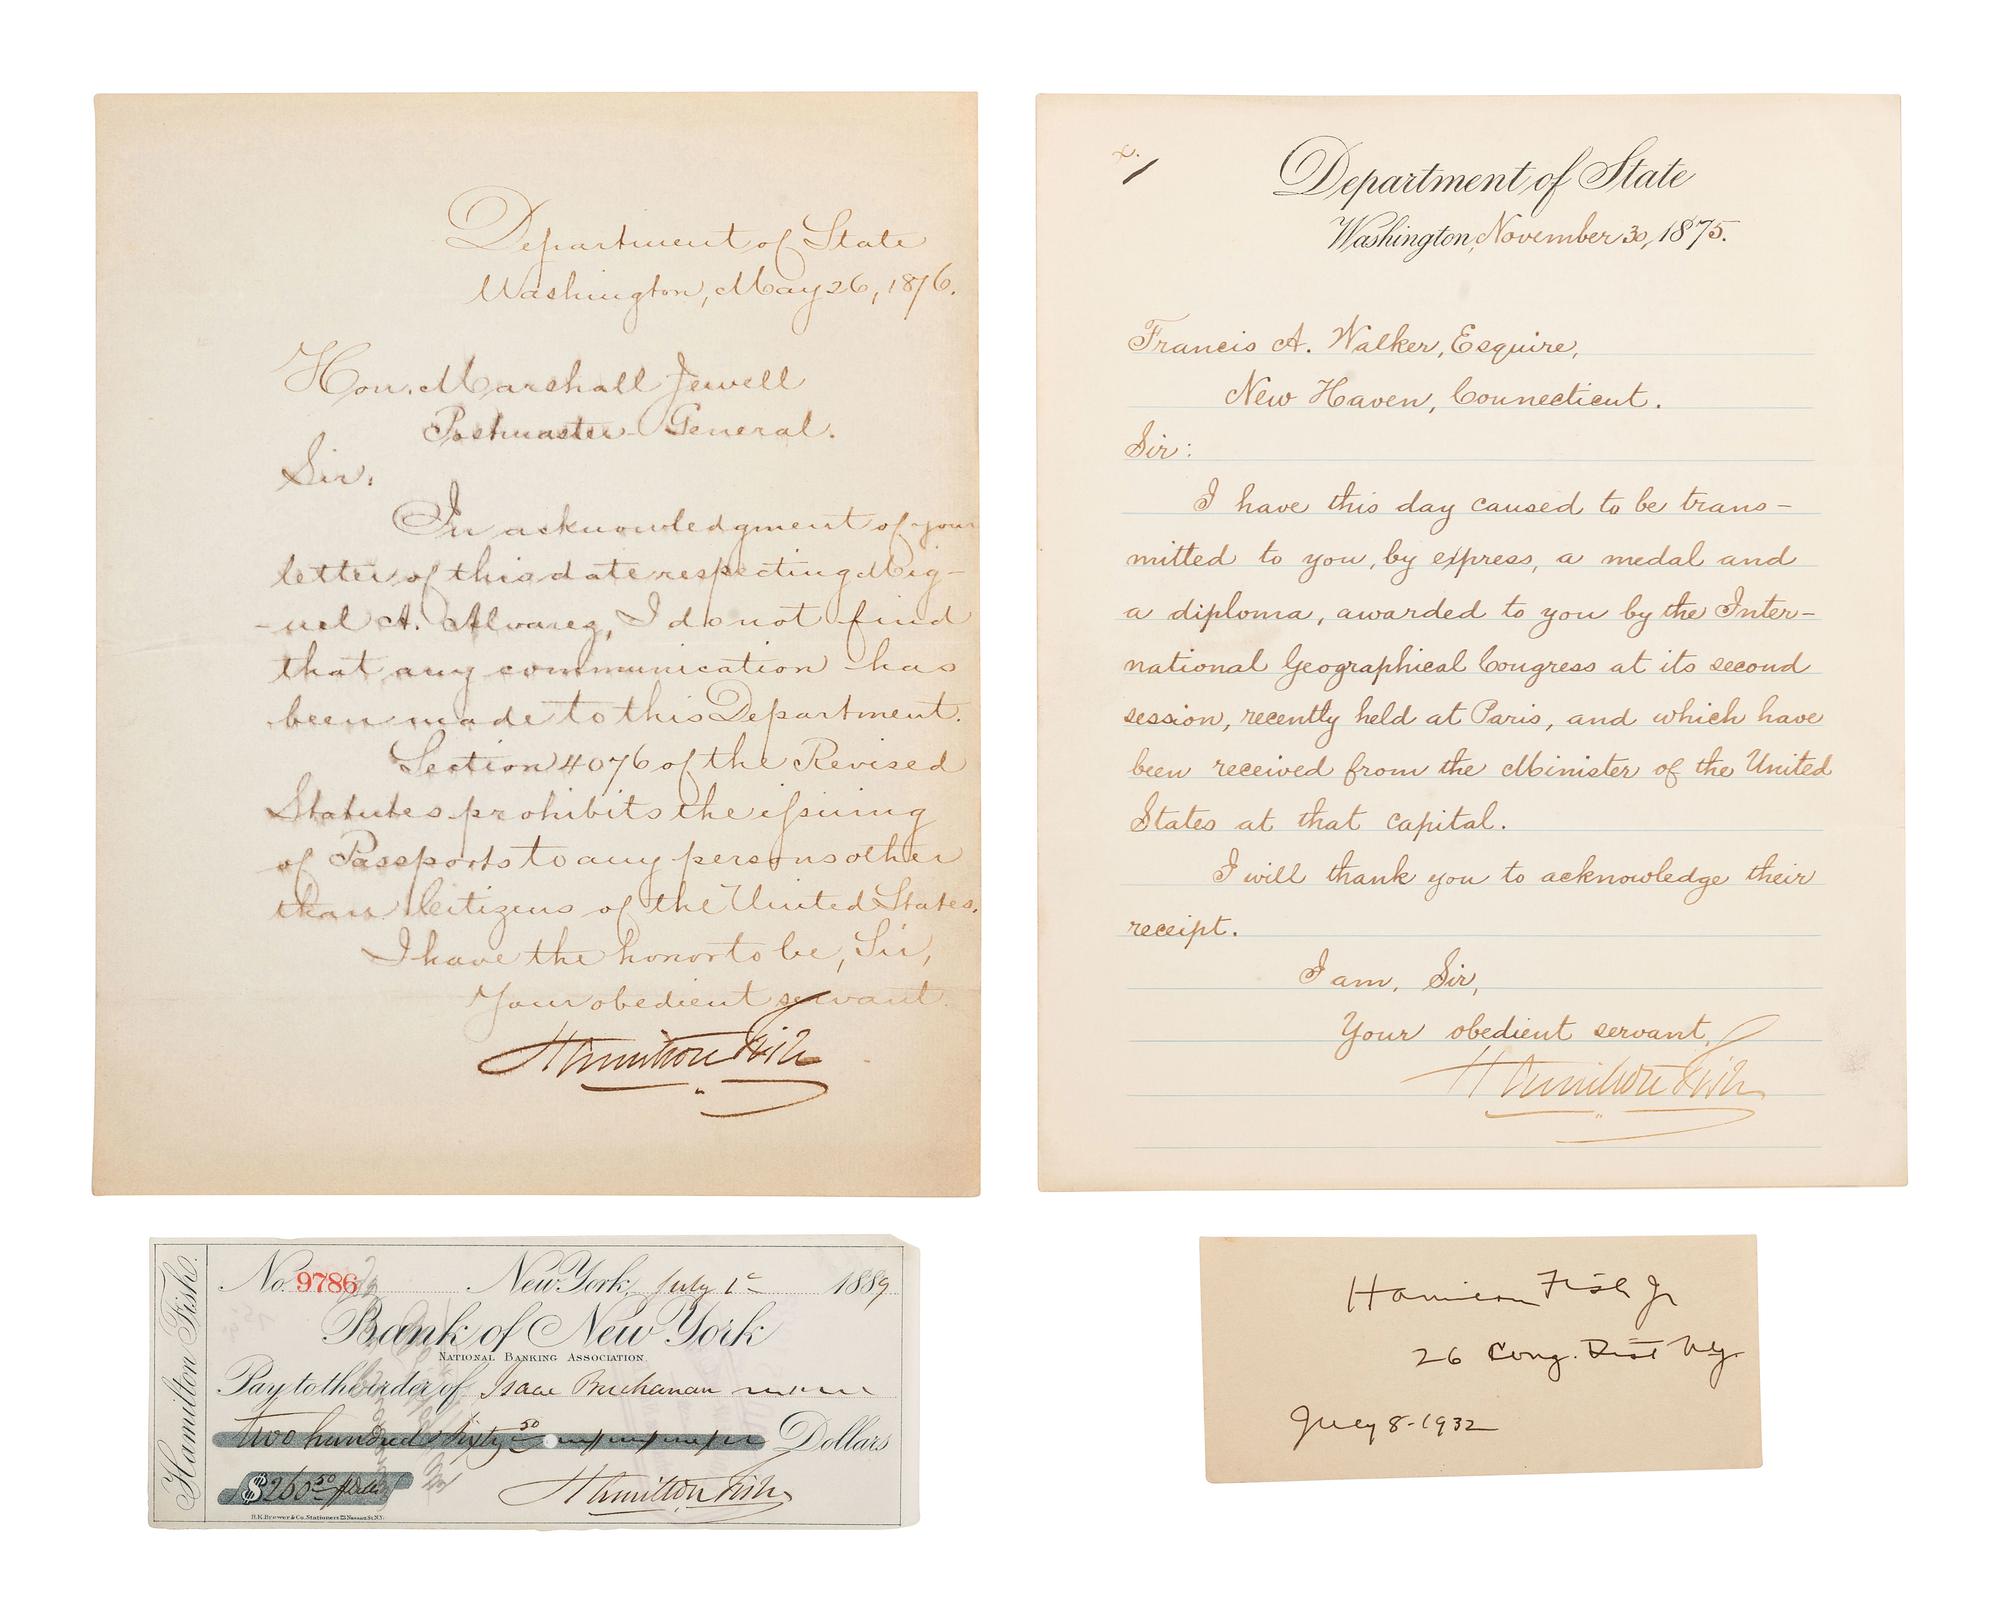 Department of State
Washington, May 26, 1876.
Hon. Marshall Jewell
Postmaster General.
Sir:
In acknowledgment of your
letter of this date respecting Mig-
-uel A. Alvarez, I do not find
that any communication has
been made to this Department.
Section 4076 of the Revised
Statutes prohibits the issuing
of Passports to any persons other
than Citizens of the United States.
I have the honor to be, Sir,
Your obedient servant
Hamilton Fish
Department of State
Washington, November 30, 1875.
Francis A. Walker, Esquire,
New Haven, Connecticut.
Sir:
I have this day caused to be trans-
mitted to you, by express, a medal and
a diploma, awarded to you by the Inter-
national Geographical Congress at its second
session, recently held at Paris, and which have
been received from the Minister of the United
States at that capital.
I will thank you to acknowledge their
receipt.
I am, Sir,
Your obedient servant,
Hamilton Fish
Hamilton Fish.
No. 9786 New York, July 1st 1889
Bank of New York
NATIONAL BANKING ASSOCIATION.
Pay to the order of Isaac Buchanan
two hundred & sixty 50 Dollars
$260 50
Hamilton Fish
B.K. Brewer & Co. Stationers 25 Nassau St. N.Y.
Hamilton Fish Jr
26 Cong. Dist N.Y.
July 8-1932